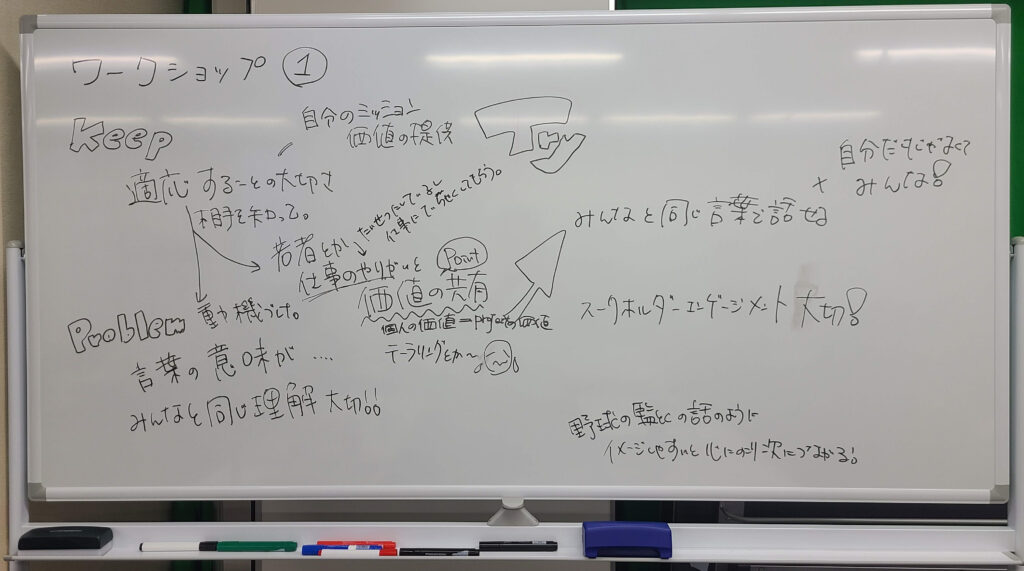 ワークショップ ①
Keep
自分のミッション
価値の提供
適応することの大切さ
相手を知って。
若者とか
仕事のやりがいと
Point
価値の共有
個人の価値=projectの価値
テーラリングとか〜
動機づけ。
Problem
言葉の意味が ....
みんなと同じ理解大切!!
Try
自分だけじゃなくて
みんな!
+
みんなと同じ言葉で話せる
ステークホルダーエンゲージメント 大切!
野球の
の話のように
イメージしやすいと心にのり次につながる!